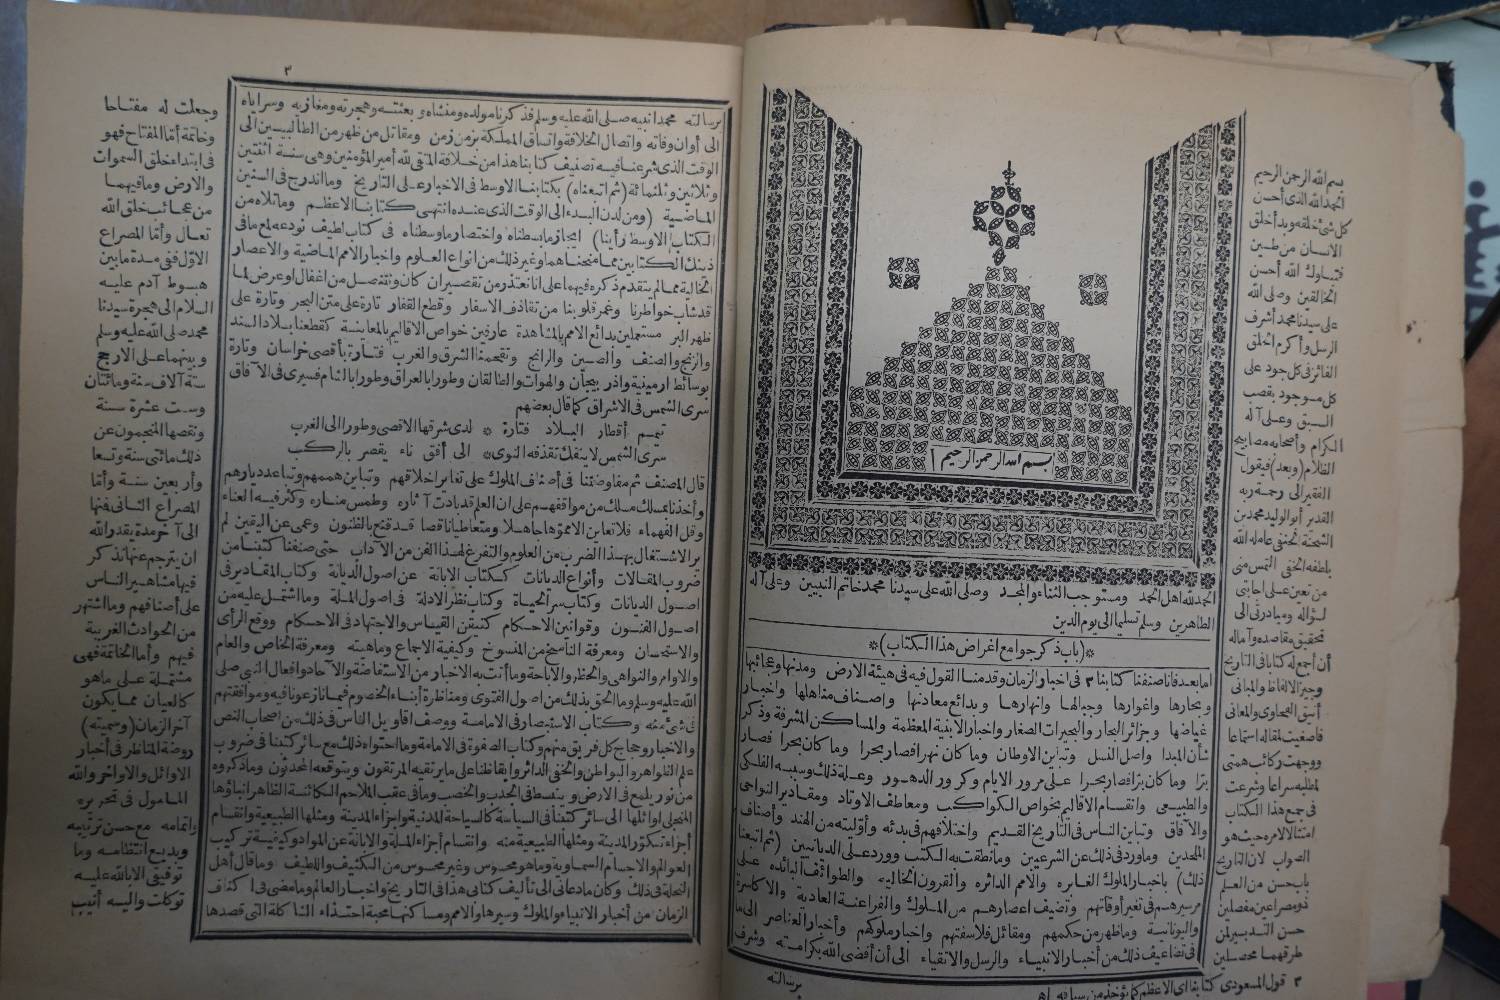 بسم الله الرحمن الرحيم
الحمد لله أهل الحمد ومستوجب الثناء والمجد وصلى الله على سيدنا محمد خاتم النبيين وعلى آله
الطاهرين وسلم تسليما الى يوم الدين
*(باب ذكر جوامع اغراض هذا الكتاب)*
أما بعد فانا صنفنا كتابنا ٣ فى أخبار الزمان وقدمنا القول فيه فى هيئة الارض ومدنها وعجائبها
وبحارها واغوارها وجبالها وانهارها وبدائع معادنها واصناف مناهلها واخبار
غياضها وجزائر البحار والبحيرات الصغار واخبار الابنية المعظمة والمساكن المشرفة وذكر
شأن المبدا واصل النسل وتباين الاوطان وما كان نهرا فصار بحرا وما كان بحرا فصار
برّا وما كان برّا فصار بحرا على مرور الايام وكرور الدهور وعلة ذلك وسببه الفلكى
والطبيعى وانقسام الاقاليم بخواص الكواكب ومعاطف الاوتاد ومقادير النواحى
والآفاق وتباين الناس فى التاريخ القديم واختلافهم فى بدئه وأوليته من الهند وأصناف
الملحدين وما ورد فى ذلك عن الشرعيين وما نطقت به الكتب وورد على الديانيين (ثم اتبعنا
ذلك) باخبار الملوك الغابره والامم الدائره والقرون الخاليه والطوائف البائده على
مر سيرهم فى تغير أوقاتهم وتضيف اعصارهم من الملوك والفراعنة العادية والاكاسرة
واليونانية وما ظهر من حكمهم ومقائل فلاسفتهم واخبار ملوكهم وأخبار العناصر الى ما
فى تضاعيف ذلك من أخبار الانبياء والرسل والاتقياء الى أن أفضى الله بكرامته وشرف
برسالته
بسم الله الرحمن الرحيم
الحمد لله الذى أحسن
كل شئ خلقه وبدأ خلق
الانسان من طين
فتبارك الله أحسن
الخالقين وصلى الله
على سيدنا محمد أشرف
الرسل وأكرم الخلق
الفائز فى كل جود على
كل موجود بقصب
السبق وعلى آله
الكرام وأصحابه مصابيح
الظلام (وبعد) فيقول
الفقير الى رحمة ربه
القدير أبو الوليد محمد بن
الشحنة الحنفى عامله الله
بلطفه الخفى التمس منى
من تعين على اجابتى
لسؤاله ومبادرتى الى
تحقيق مقاصده وآماله
أن أجمع له كتابا فى التاريخ
وجيز الالفاظ والمبانى
أنيق الفحاوى والمعانى
فأصغيت لمقاله استماعا
ووجهت ركائب همتى
لمطلبه سراعا وشرعت
فى جمع هذا الكتاب
امتثالا لامره حيث هو
الصواب لان التاريخ
باب حسن من العلم
ذو مصراعين مفصلين
حسن التدبير لمن
طرقهما محصلين
٣ قول المسعودى كتابنا اى الاعظم كما يؤخذ من سياقه اهـ
٣
برسالته محمدا نبيه صلى الله عليه وسلم فذكرنا مولده ومنشأه وبعثته وهجرته ومغازيه وسراياه
الى أوان وفاته واتصال الخلافة واتساق المملكة بزمن زمن ومقاتل من ظهر من الطالبيين الى
الوقت الذى شرعنا فيه تصنيف كتابنا هذا من خلافة المتقى لله أمير المؤمنين وهى سنة اثنتين
وثلاثين وثلثمائة (ثم اتبعناه) بكتابنا الاوسط فى الاخبار على التاريخ وما اندرج فى السنين
الماضية (ومن لدن البدء الى الوقت الذى عنده انتهى كتابنا الاعظم وما تلاه من
الكتاب الاوسط رأينا) ايجاز ما بسطناه واختصار ما وسطناه فى كتاب لطيف نودعه لمع ما فى
ذينك الكتابين مما ضمناهما وغير ذلك من أنواع العلوم واخبار الامم الماضية والاعصار
الخالية مما لم يتقدم ذكره فيهما على انا نعتذر من تقصير ان كان ونتنصل من اغفال او عرض لما
قد شاب خواطرنا وغمر قلوبنا من تقاذف الاسفار وقطع القفار تارة على متن البحر وتارة على
ظهر البر مستعملين بدائع الامم بالمشاهدة عارفين خواص الاقاليم بالمعاينة كقطعنا بلاد السند
والزنج والصنف والصين والرانج وتقحمنا الشرق والغرب فتارة بأقصى خراسان وتارة
بوسائط ارمينية واذربيجان والهوات والطالقان وطورا بالعراق وطورا بالشام فسيرى فى الآفاق
سرى الشمس فى الاشراق كما قال بعضهم
تيمم أقطار البلاد فتارة * لدى شرقها الاقصى وطورا الى الغرب
سرى الشمس لا ينفك تقذفه النوى * الى أفق ناء يقصر بالركب
قال المصنف ثم مفاوضتنا فى أصناف الملوك على تغاير اخلاقهم وتباين هممهم وتباعد ديارهم
وأخذنا بمسلك مسلك من مواقفهم على ان العلم قد بادت آثاره وطمس مناره وكثر فيه العناء
وقل الفهماء فلا تعاين الا مموها جاهلا ومتعاطيا ناقصا قد قنع بالظنون وعمى عن اليقين لم
ير الاشتغال بهذا الضرب من العلوم والتفرغ لهذا الفن من الآداب حتى صنفنا كتبنا من
ضروب المقالات وأنواع الديانات ككتاب الابانة عن اصول الديانة وكتاب المقادير فى
اصول الديانات وكتاب سر الحياة وكتاب نظر الادلة فى اصول الملة وما اشتمل عليه من
اصول الفنون وقوانين الاحكام كتيقن القياس والاجتهاد فى الاحكام ووقع الرأى
والاستحسان ومعرفة الناسخ من المنسوخ وكيفية الاجماع وماهيته ومعرفة الخاص والعام
والاوامر والنواهى والحظر والاباحة وما أتت به الاخبار من الاستفاضة والآحاد وافعال النبى صلى
الله عليه وسلم وما الحق بذلك من اصول الفتوى ومناظرة أبناء الخصوم فيما نازعونا فيه وموافقتهم
فى شئ منه وكتاب الاستبصار فى الامامة ووصف اقاويل الناس فى ذلك من اصحاب النص
والاخبار وحجاج كل فريق منهم وكتاب الصفوة فى الامامة وما احتواه ذلك مع سائر كتبنا فى ضروب
علم الظواهر والبواطن والخفى الدائر وايقاظنا على ما يرتقبه المرتقبون ويتوقعه المحدثون وما ذكروه
من نور يلمع فى الارض وينبسط فى الجدب والخصب وما فى عقب الملاحم الكائنة الظاهر انباؤها
المنجلى اوائلها الى سائر كتبنا فى السياسة كالسياحة المدنية واجزاء المدينة ومثلها الطبيعية وانقسام
أجزاء تكوّر المدينة ومثلها الطبيعية منه وانقسام أجزاء الملة والابانة عن المواد وكيفية تركيب
العوالم والاجسام السماوية وما هو محسوس وغير محسوس من الكثيف واللطيف وما قال أهل
النحلة فى ذلك وكان ما دعانى الى تأليف كتابى هذا فى التاريخ واخبار العالم وما مضى فى اكناف
الزمان من أخبار الانبياء والملوك وسيرها والامم ومساكنها محبة احتذاء الشاكلة التى قصدها
وجعلت له مفتاحا
وخاتمة أما المفتاح فهو
فى ابتداء خلق السموات
والارض وما فيهما
من عجائب خلق الله
تعالى وأما المصراع
الاول ففى مدة ما بين
هبوط آدم عليه
السلام الى هجرة سيدنا
محمد صلى الله عليه وسلم
وبينهما على الارجح
ستة آلاف سنة ومائتان
وست عشرة سنة
ونقصها المنجمون عن
ذلك مائتى سنة وتسعا
وأربعين سنة وأما
المصراع الثانى فمنها
الى آخر مدة يقدر الله
ان يترجم عنها نذكر
فيها مشاهير الناس
على أصنافهم وما اشتهر
من الحوادث الغريبة
فيهم وأما الخاتمة فهى
مشتملة على ما هو
كالعيان مما يكون
آخر الزمان (وسميته)
روضة المناظر فى أخبار
الاوائل والاواخر والله
المامول فى تحريره
واتمامه مع حسن ترتيبه
وبديع انتظامه وما
توفيقى الا بالله عليه
توكلت واليه أنيب